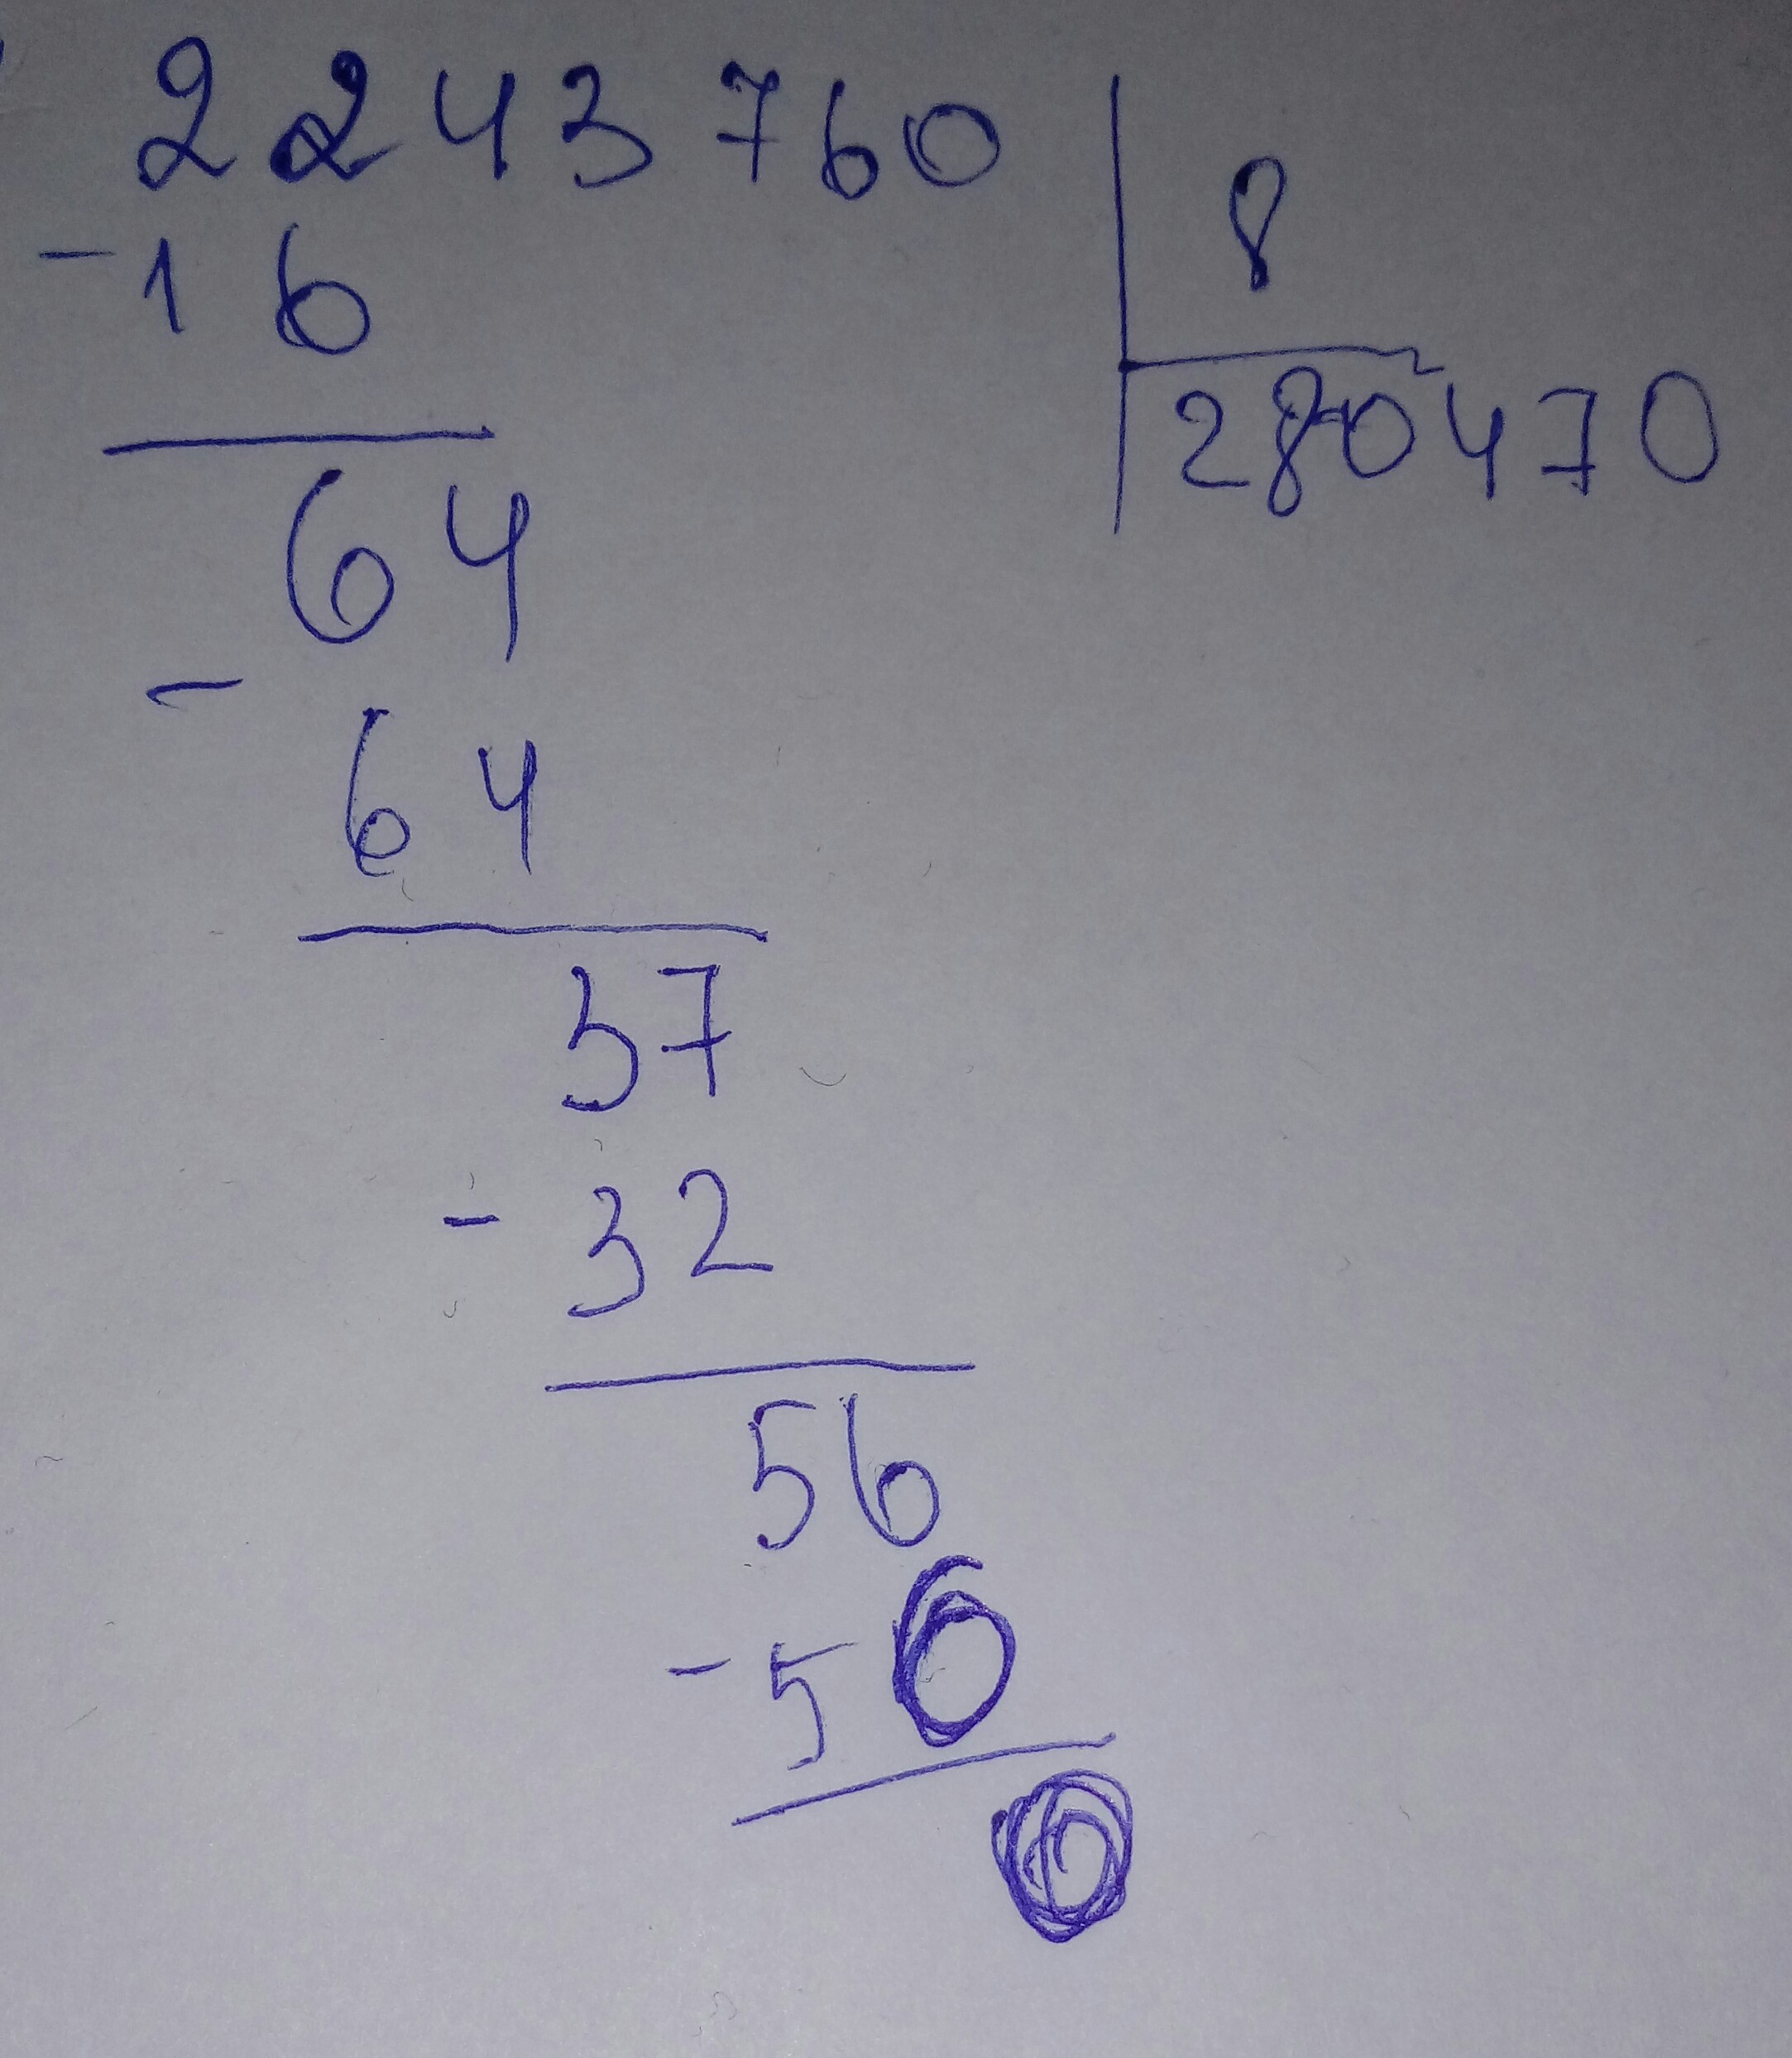 2243760
8
-16
280470
64
-
64
37
-32
56
-56
0